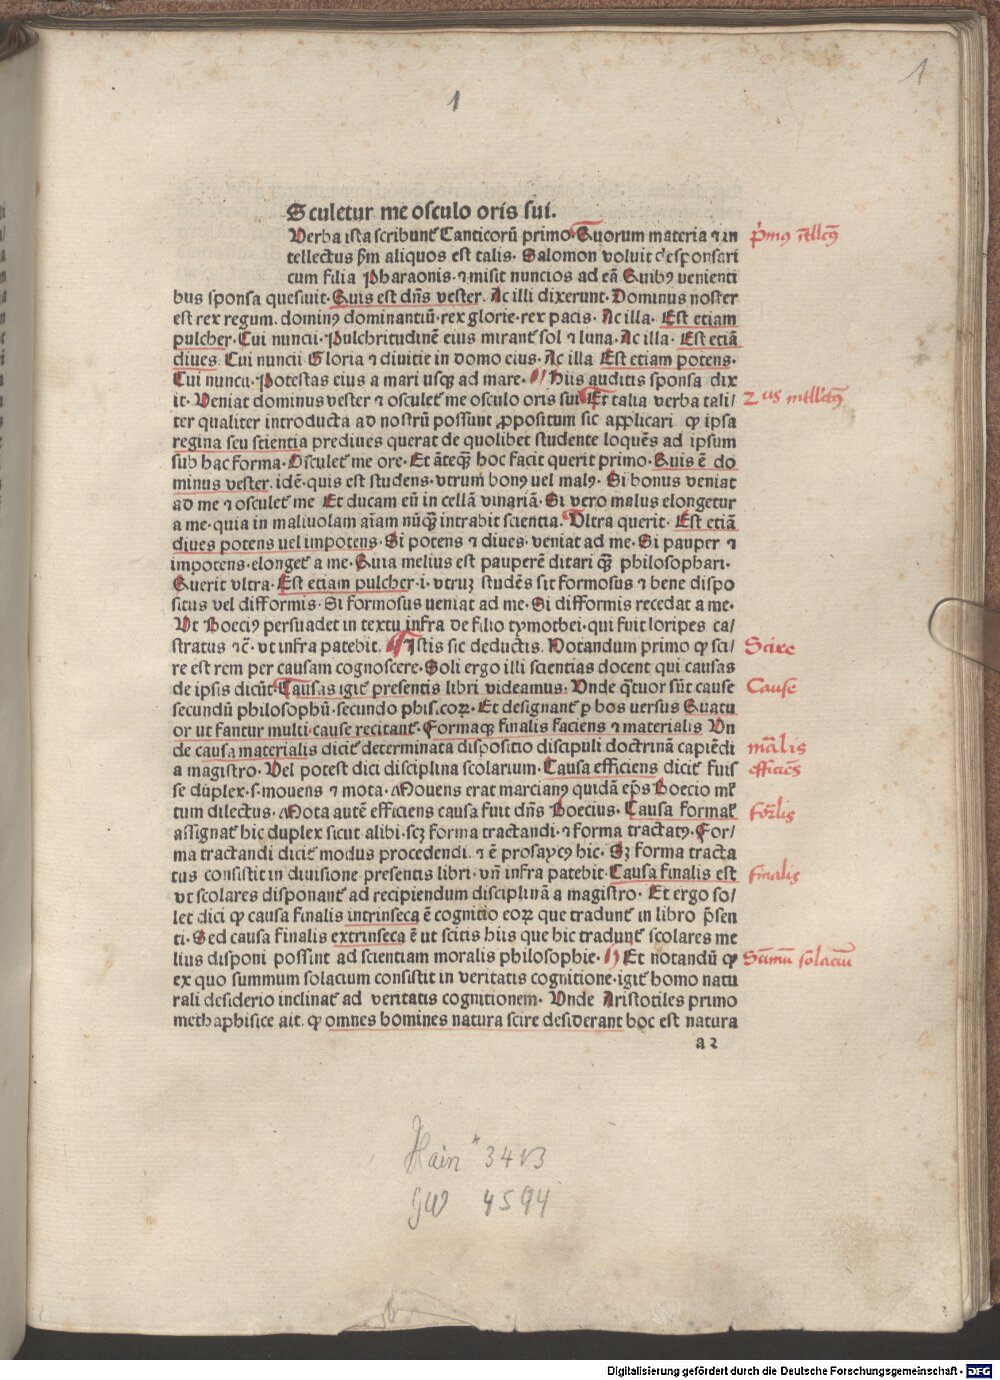 1
1
Sculetur me osculo oris sui.
Verba ista scribunt̃ Canticorũ primo. Quorum materia ⁊ in
p̃mꝯ ĩtll̃cꝯ
tellectus ẜm aliquos est talis. Salomon voluit desponsari
cum filia Pharaonis. ⁊ misit nuncios ad eã Quibꝯ venienti
bus sponsa quesiuit. Quis est dñs vester. Ac illi dixerunt. Dominus noster
est rex regum. dominꝯ dominantiũ. rex glorie. rex pacis. Ac illa. Est etiam
pulcher. Cui nuncii. Pulchritudinẽ eius mirant̃ sol ⁊ luna. Ac illa. Est etiã
diues Cui nuncii Gloria ⁊ diuitie in domo eius. Ac illa Est etiam potens.
Cui nuncii. Potestas eius a mari usqꝫ ad mare. Hiis auditis sponsa dix
it. Veniat dominus vester ⁊ osculet̃ me osculo oris sui Et talia verba tali/
2us intll̃cꝯ
ter qualiter introducta ad nostrũ possunt ꝓpositum sic applicari ꝙ ipsa
regina seu scientia prediues querat de quolibet studente loquẽs ad ipsum
sub hac forma. Osculet̃ me ore. Et ãteqꝫ̃ hoc facit querit primo. Quis ẽ do
minus vester. idẽ. quis est studens. vtrum bonꝯ uel malꝯ. Si bonus veniat
ad me ⁊ osculet̃ me Et ducam eũ in cellã vinariã. Si vero malus elongetur
a me. quia in maliuolam aĩam nũqꝫ̃ intrabit scientia. Vltra querit. Est etiã
diues potens uel impotens. Si potens ⁊ diues. veniat ad me. Si pauper ⁊
impotens. elonget̃ a me. Quia melius est pauperẽ ditari qꝫ̃ philosophari.
Querit vltra. Est etiam pulcher. i. vtruꝫ studẽs sit formosus ⁊ bene dispo
situs vel difformis. Si formosus ueniat ad me. Si difformis recedat a me.
Vt Boeciꝯ persuadet in textu infra de filio tymothei. qui fuit loripes ca/
stratus ⁊c̃. vt infra patebit. Istis sic deductis. Notandum primo ꝙ sci/
Scire
re est rem per causam cognoscere. Soli ergo illi scientias docent qui causas
de ipsis dicũt. Causas igit̃ presentis libri videamus. Vnde q̃tuor sũt cause
Cause
secundũ philosophũ. secundo phis̃.coꝝ. Et designant̃ ꝑ hos versus Quatu
or ut fantur multi cause recitant̃. Formaqꝫ finalis faciens ⁊ materialis Vn
de causa materialis dicit̃ determinata dispositio discipuli doctrinã capiẽdi
mãlis
a magistro. Vel potest dici disciplina scolarium. Causa efficiens dicit̃ fuis
efficiẽs
se duplex. s. mouens ⁊ mota. Mouens erat marcianꝯ quidã ep̃s Boecio ml̃
tum dilectus. Mota autẽ efficiens causa fuit dñs Boecius. Causa formal̃
for̃lis
assignat̃ hic duplex sicut alibi. scꝫ forma tractandi. ⁊ forma tractatꝯ. For/
ma tractandi dicit̃ modus procedendi. ⁊ ẽ prosaycꝯ hic. Sꝫ forma tracta
tus consistit in diuisione presentis libri. vñ infra patebit. Causa finalis est
finalis
vt scolares disponant̃ ad recipiendum disciplinã a magistro. Et ergo so/
let dici ꝙ causa finalis intrinseca ẽ cognitio eoꝝ que tradunt̃ in libro p̃sen
ti. Sed causa finalis extrinseca ẽ ut scitis hiis que hic tradunt̃ scolares me
lius disponi possint ad scientiam moralis philosophie. Et notandũ ꝙ
Sũmũ solaciũ
ex quo summum solacium consistit in veritatis cognitione. igit̃ homo natu
rali desiderio inclinat̃ ad veritatis cognitionem. Vnde Aristotiles primo
methaphisice ait. ꝙ omnes homines natura scire desiderant hoc est natura
a 2
Hain * 3413
GW 4594
Digitalisierung gefördert durch die Deutsche Forschungsgemeinschaft - DFG